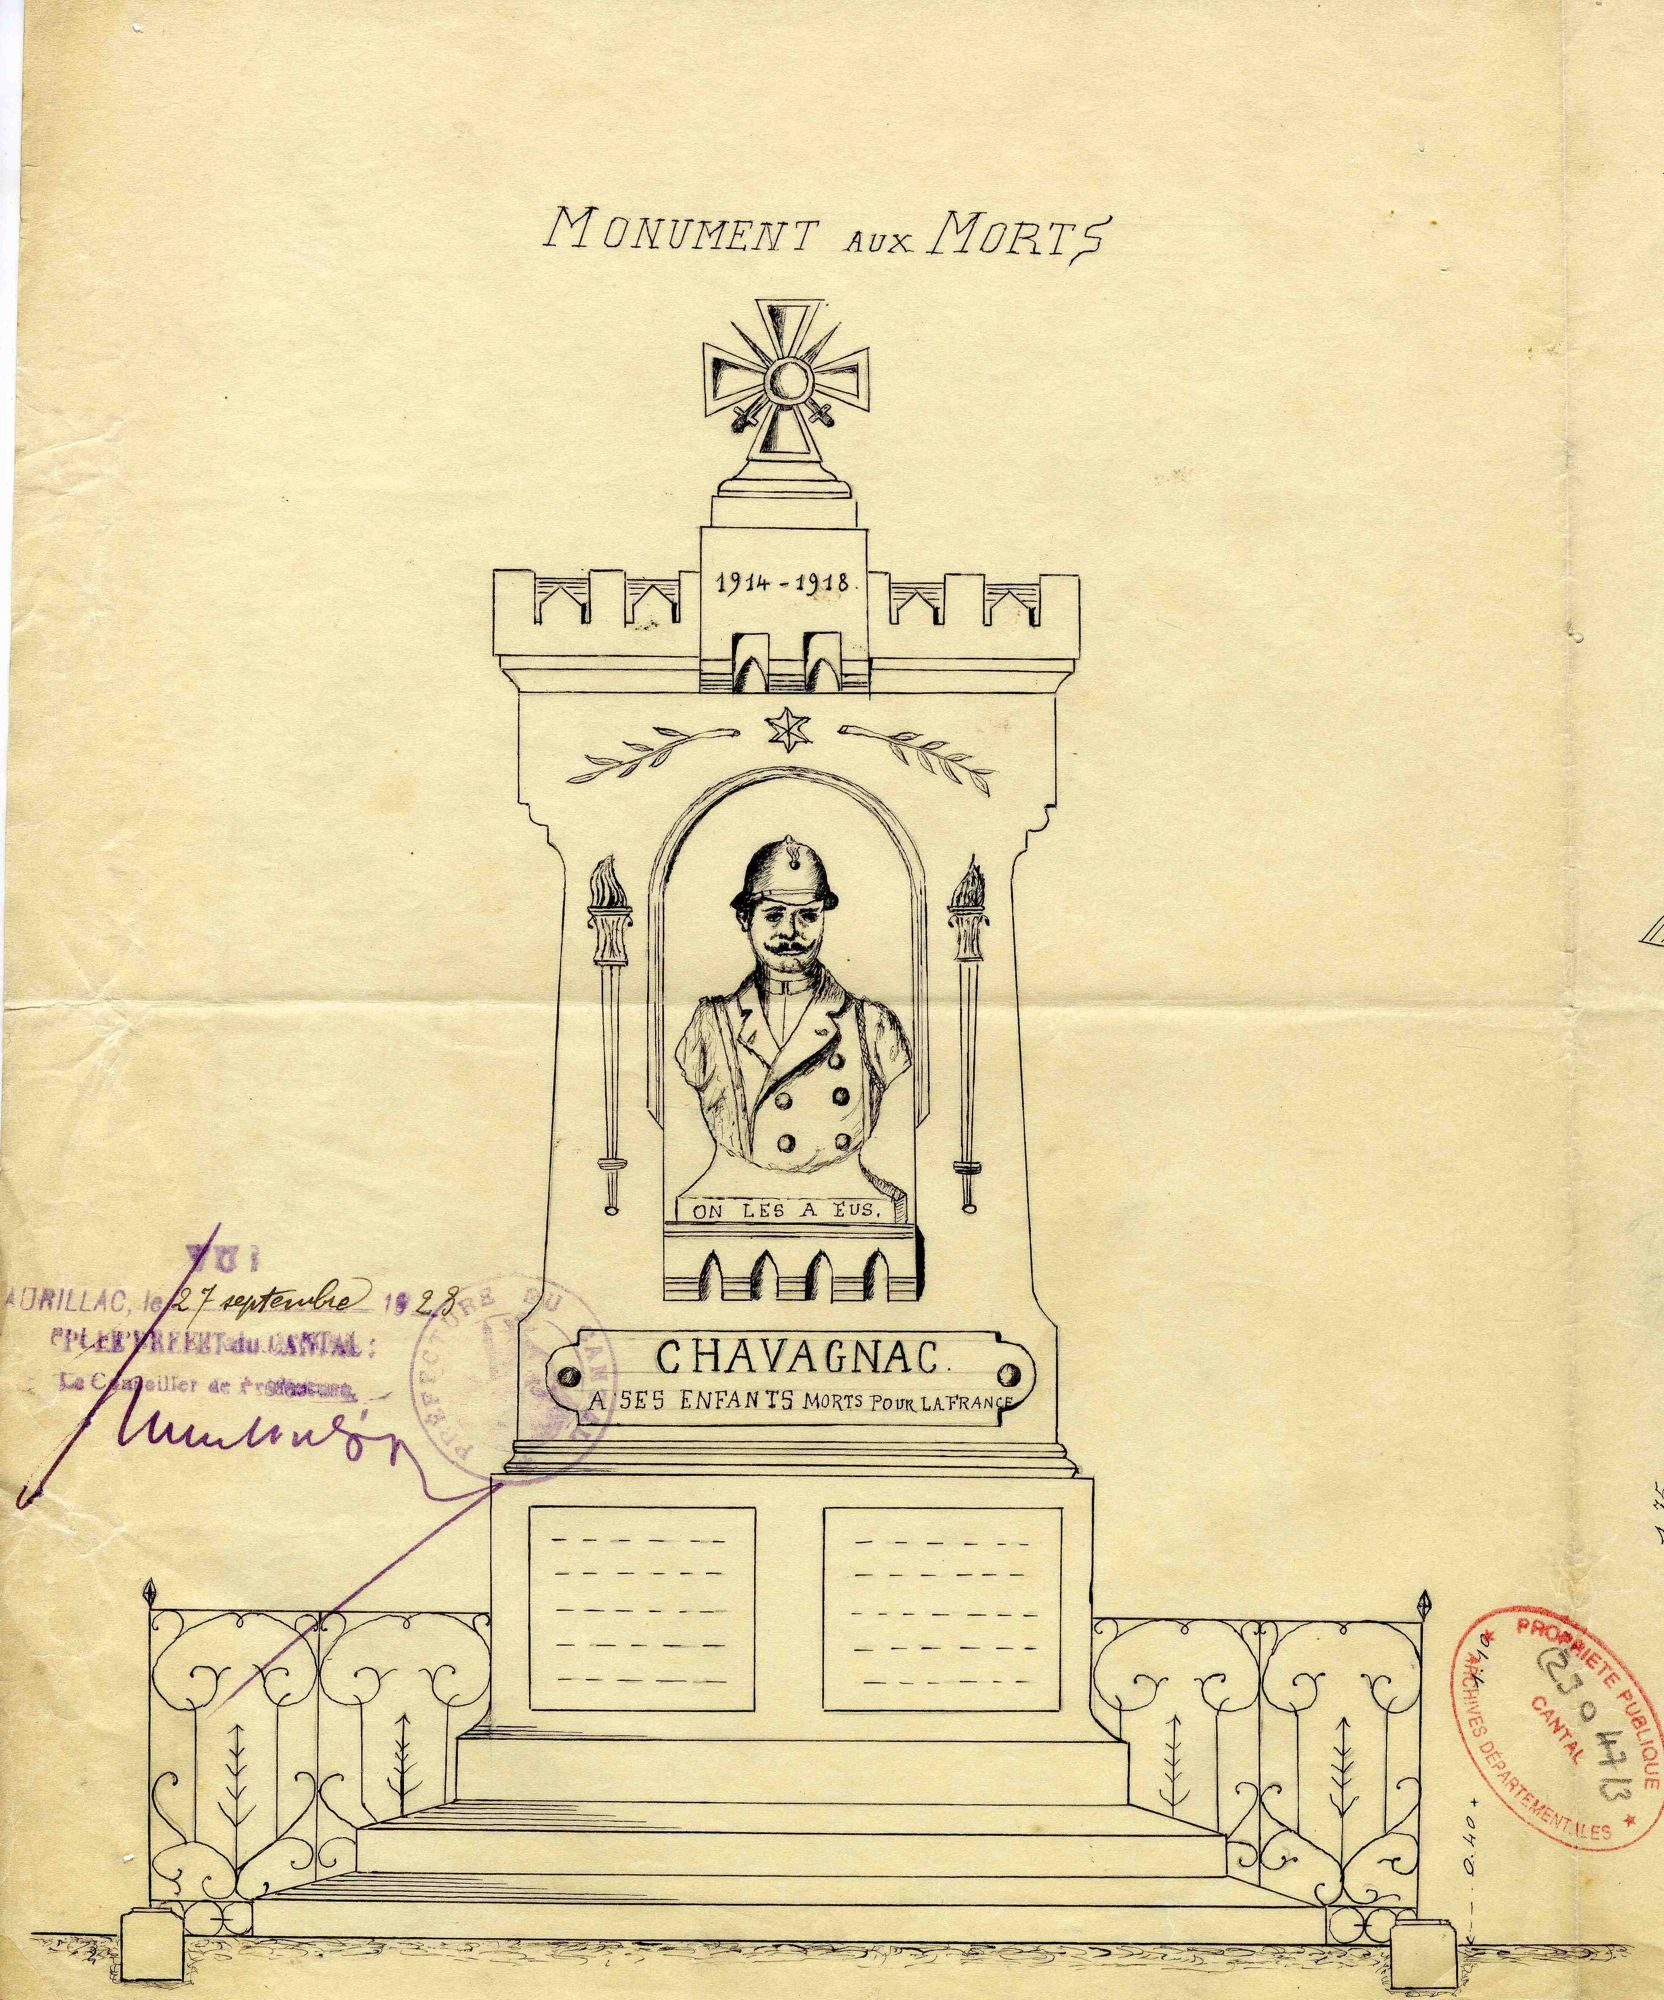 MONUMENT AUX MORTS
1914-1918.
ON LES A EUS.
VU :
AURILLAC, le 27 septembre 1928
LE PREFET du CANTAL :
Le Conseiller de Préfecture,
PREFECTURE DU CANTAL
CHAVAGNAC.
A SES ENFANTS MORTS POUR LA FRANCE
1.10
PROPRIETE PUBLIQUE
ARCHIVES DÉPARTEMENTALES
CANTAL
0.40